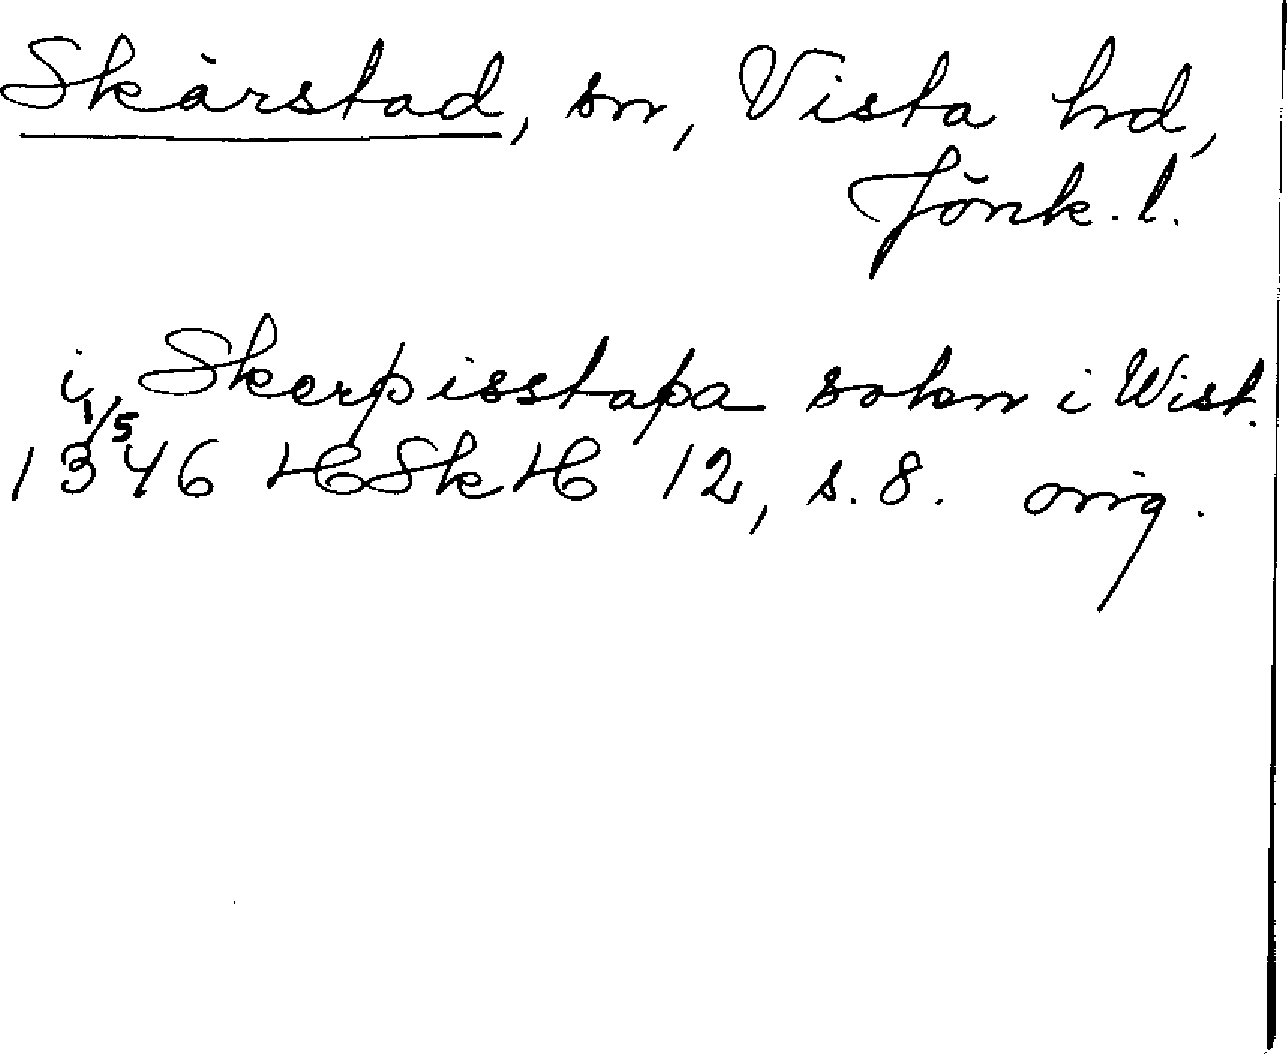 Skärstad, sn, Vista hd,
Jönk.l.
i Skerþisstaþa sokn i Wist.
1/5
1346 HSkH 12, s.8. orig.